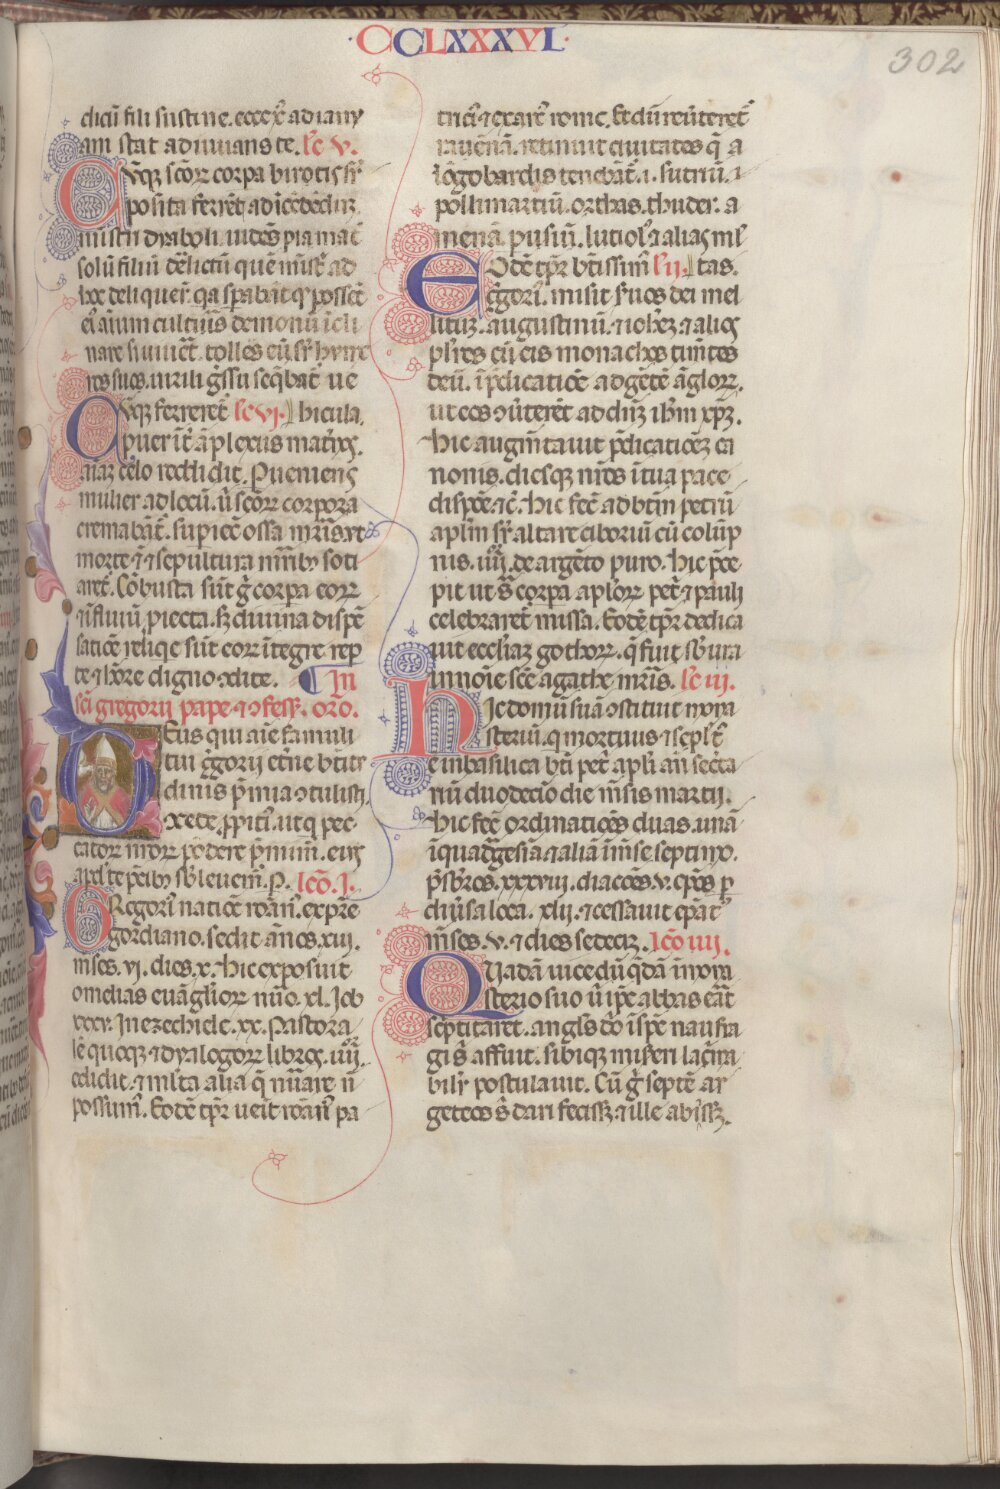 ·CCLXXXXVI·
302
dicūt fili sustine. ecce xp̄s ad ianu
am stat adiuuans te. lc̄ v.
Cūq̄ scōꝝ corpa birotis sr̄
posita ferrēt ad īcēdēdū
ministri dyaboli. uidēs pia mat̄
solū filiū dēlictū quē mīstr̄ ad
hoc deliquer̄t qa spabāt q posset
ei aīum cultūis demonū īcli
nare si uiu̅et̄. tollēs eū sr̄ hūme
ros suos. uirili gs̄su seq̄bat̄ ve
Cūq̄ ferreret̄ lc̄ vi. hicula.
puer īt̄ āplexus mat̄nos.
aīaꝫ celo reddidit. Pueniens
mulier ad locū. ū scōꝝ corpora
cremabāt̄. supiec̄ ossa mr̄is. ut
morte ⁊ sepultura mr̄ibꝫ soci
aret̄. Cōbusta sūt ḡ corpa eoꝝ
⁊ ī fluuiū piecta. sꝫ diuina dispē
satiōe reliqe sūt eoꝝ ītegre rep
te ⁊ hōre digno ↄdite. In
sc̄i gregorii pape ⁊ ↄfess. oro.
Deus qui aīe famuli
tui ḡgorij etn̄e bt̄itu
dinis p̄mia ↄtulisti.
ↄcede ppiti. ut q pec
catoꝝ nr̄oꝝ pōdere p̄mim̄. eius
apd te pcibꝫ sb̄leuem̄. P. lcō. I.
Gregori natiōe roān̄. ex pr̄e
gordiano. sedit ānos. xiii.
mses. vi. dies. x. hic exposuit
omelias euāgl̄ioꝝ nūo. xl. Job
xxxv. In ezechiele. xx. Pastora
lē quoqꝫ ⁊ dyalogoꝝ libros. iiii.
edidit. ⁊ mlt̄a alia q̄ nūare n̄
possum̄. Eodē tpr̄ ueit roān̄ pa
trici ⁊ exarc̄ rome. Et dū reūteret̄
rauēnā. retinuit ciuitates q̄ a
lōgobardis tenebāt̄. i. sutriū. ⁊
pollimartiū. orthas. thuder. a
meriā. pusiū. luciol̄ ⁊ alias ml̄
Eodē tpr̄ bt̄issim̄ l̄ ii. tas.
ḡgori. misit s̄uos dei mel
litūꝫ. augustinū. ⁊ iohēꝫ. ⁊ alios
plr̄es cū eis monachos timētes
deū. ī p̄dicatiōe ad gētē āgloꝝ.
ut eos ↄūteret ad dn̄ꝫ ihm̄ xp̄ꝫ.
hic augm̄tauit p̄dicatiōeꝫ ca
nonis. diesqꝫ nr̄os ī tua pace
dispōe. ⁊c̄. hic fec̄ ad btm̄ petrū
aplm̄ sr̄ altare ciboriū cū colūp
nis. iiii. de argēto puro. hic p̄ce
pit ut s̄ corpa aploꝝ petr̄ ⁊ pauli
celebraret̄ missa. Eodē tpr̄ dedica
uit ecclīaꝫ gothoꝝ. q̄ fuit sb̄ura
in noīe sc̄e agathe mr̄is. lc̄ iii.
Hic domū suā ↄstituit mona
steriū. q mortuus ⁊ sepl̄t̄
ē in basilica bt̄i petr̄ apl̄i aн̄ sec̄ta
riū duodecīo die m̄sis martij.
hic fec̄ ordinatiōes duas. unā
ī quadḡesīa. ⁊ aliā ī m̄se septimo.
p̄sbr̄os. xxxviii. diacōes. v. ep̄os p
diūsa loca. xlii. ⁊ cessauit ep̄at̄
m̄ses. v. ⁊ dies sedeciꝫ. lcō iiii.
Quadā uice dū q̄dā ī mona
sterio suo ū ip̄e abbas eāt̄
sc̄ptitaret. angl̄s dō ī spē naufra
gi s̄ affuit. sibiqꝫ miseri lac̄ma
bilr̄ postulauit. Cū ḡ septē ar
genteos s̄ dari fecissꝫ. ⁊ ille abissꝫ.